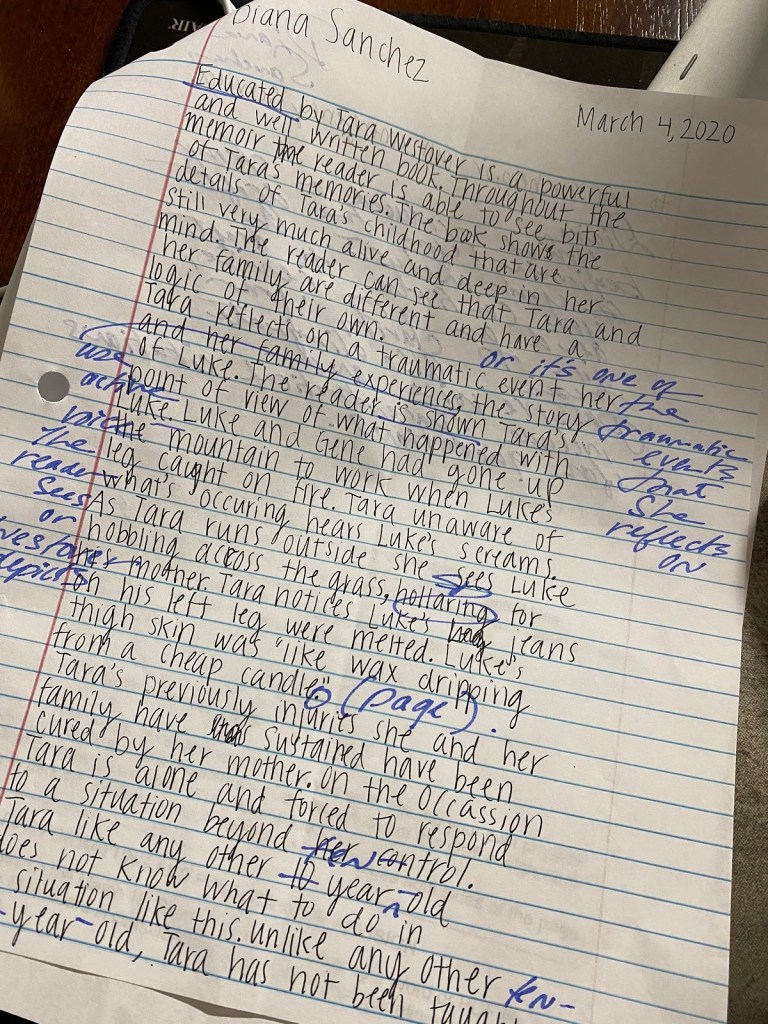 Diana Sanchez
March 4, 2020
Educated by Tara Westover is a powerful
and well written book. Throughout the
memoir the reader is able to see bits
of Tara's memories. The book shows the
details of Tara's childhood that are
still very much alive and deep in her
mind. The reader can see that Tara and
her family are different and have a
logic of their own.
Tara reflects on a traumatic event her
and her family experiences, the story
of Luke. The reader is shown Tara's
point of view of what happened with
Luke. Luke and Gene had gone up
the mountain to work when Luke's
leg caught on fire. Tara unaware of
what's occuring hears Luke's screams.
As Tara runs outside she sees Luke
hobbling across the grass, hollaring for
her mother. Tara notices Luke's jeans
on his left leg were melted. Luke's
thigh skin was "like wax dripping
from a cheap candle." (page).
Tara's previously injuries she and her
family have sustained have been
cured by her mother. On the occassion
Tara is alone and forced to respond
to a situation beyond her control.
Tara like any other 10 year-old
does not know what to do in
situation like this. Unlike any other ten-
-year-old, Tara has not been taught
or it's one of
the
traumatic
events
that
she
reflects
on
use
active
voice
the
reader
sees
or
Westover
depicts
ten